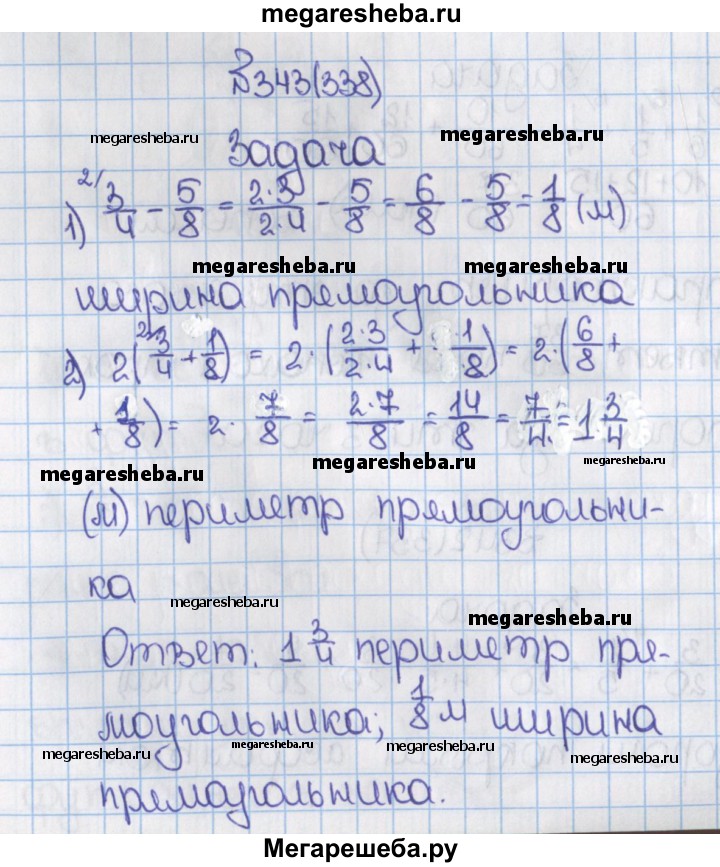 megaresheba.ru
№343(338)
megaresheba.ru
megaresheba.ru
Задача
1) 2/ 3/4 - 5/8 = 2·3/2·4 - 5/8 = 6/8 - 5/8 = 1/8 (м)
megaresheba.ru
ширина прямоугольника
2) 2(2/ 3/4 + 1/8) = 2·(2·3/2·4 + 1/8) = 2·(6/8 +
+ 1/8) = 2· 7/8 = 2·7/8 = 14/8 = 7/4 = 1 3/4
megaresheba.ru
megaresheba.ru
megaresheba.ru
(м) периметр прямоугольни-
ка
megaresheba.ru
megaresheba.ru
Ответ: 1 3/4 периметр пря-
моугольника; 1/8 м ширина
megaresheba.ru
megaresheba.ru
megaresheba.ru
прямоугольника.
Мегарешеба.ру